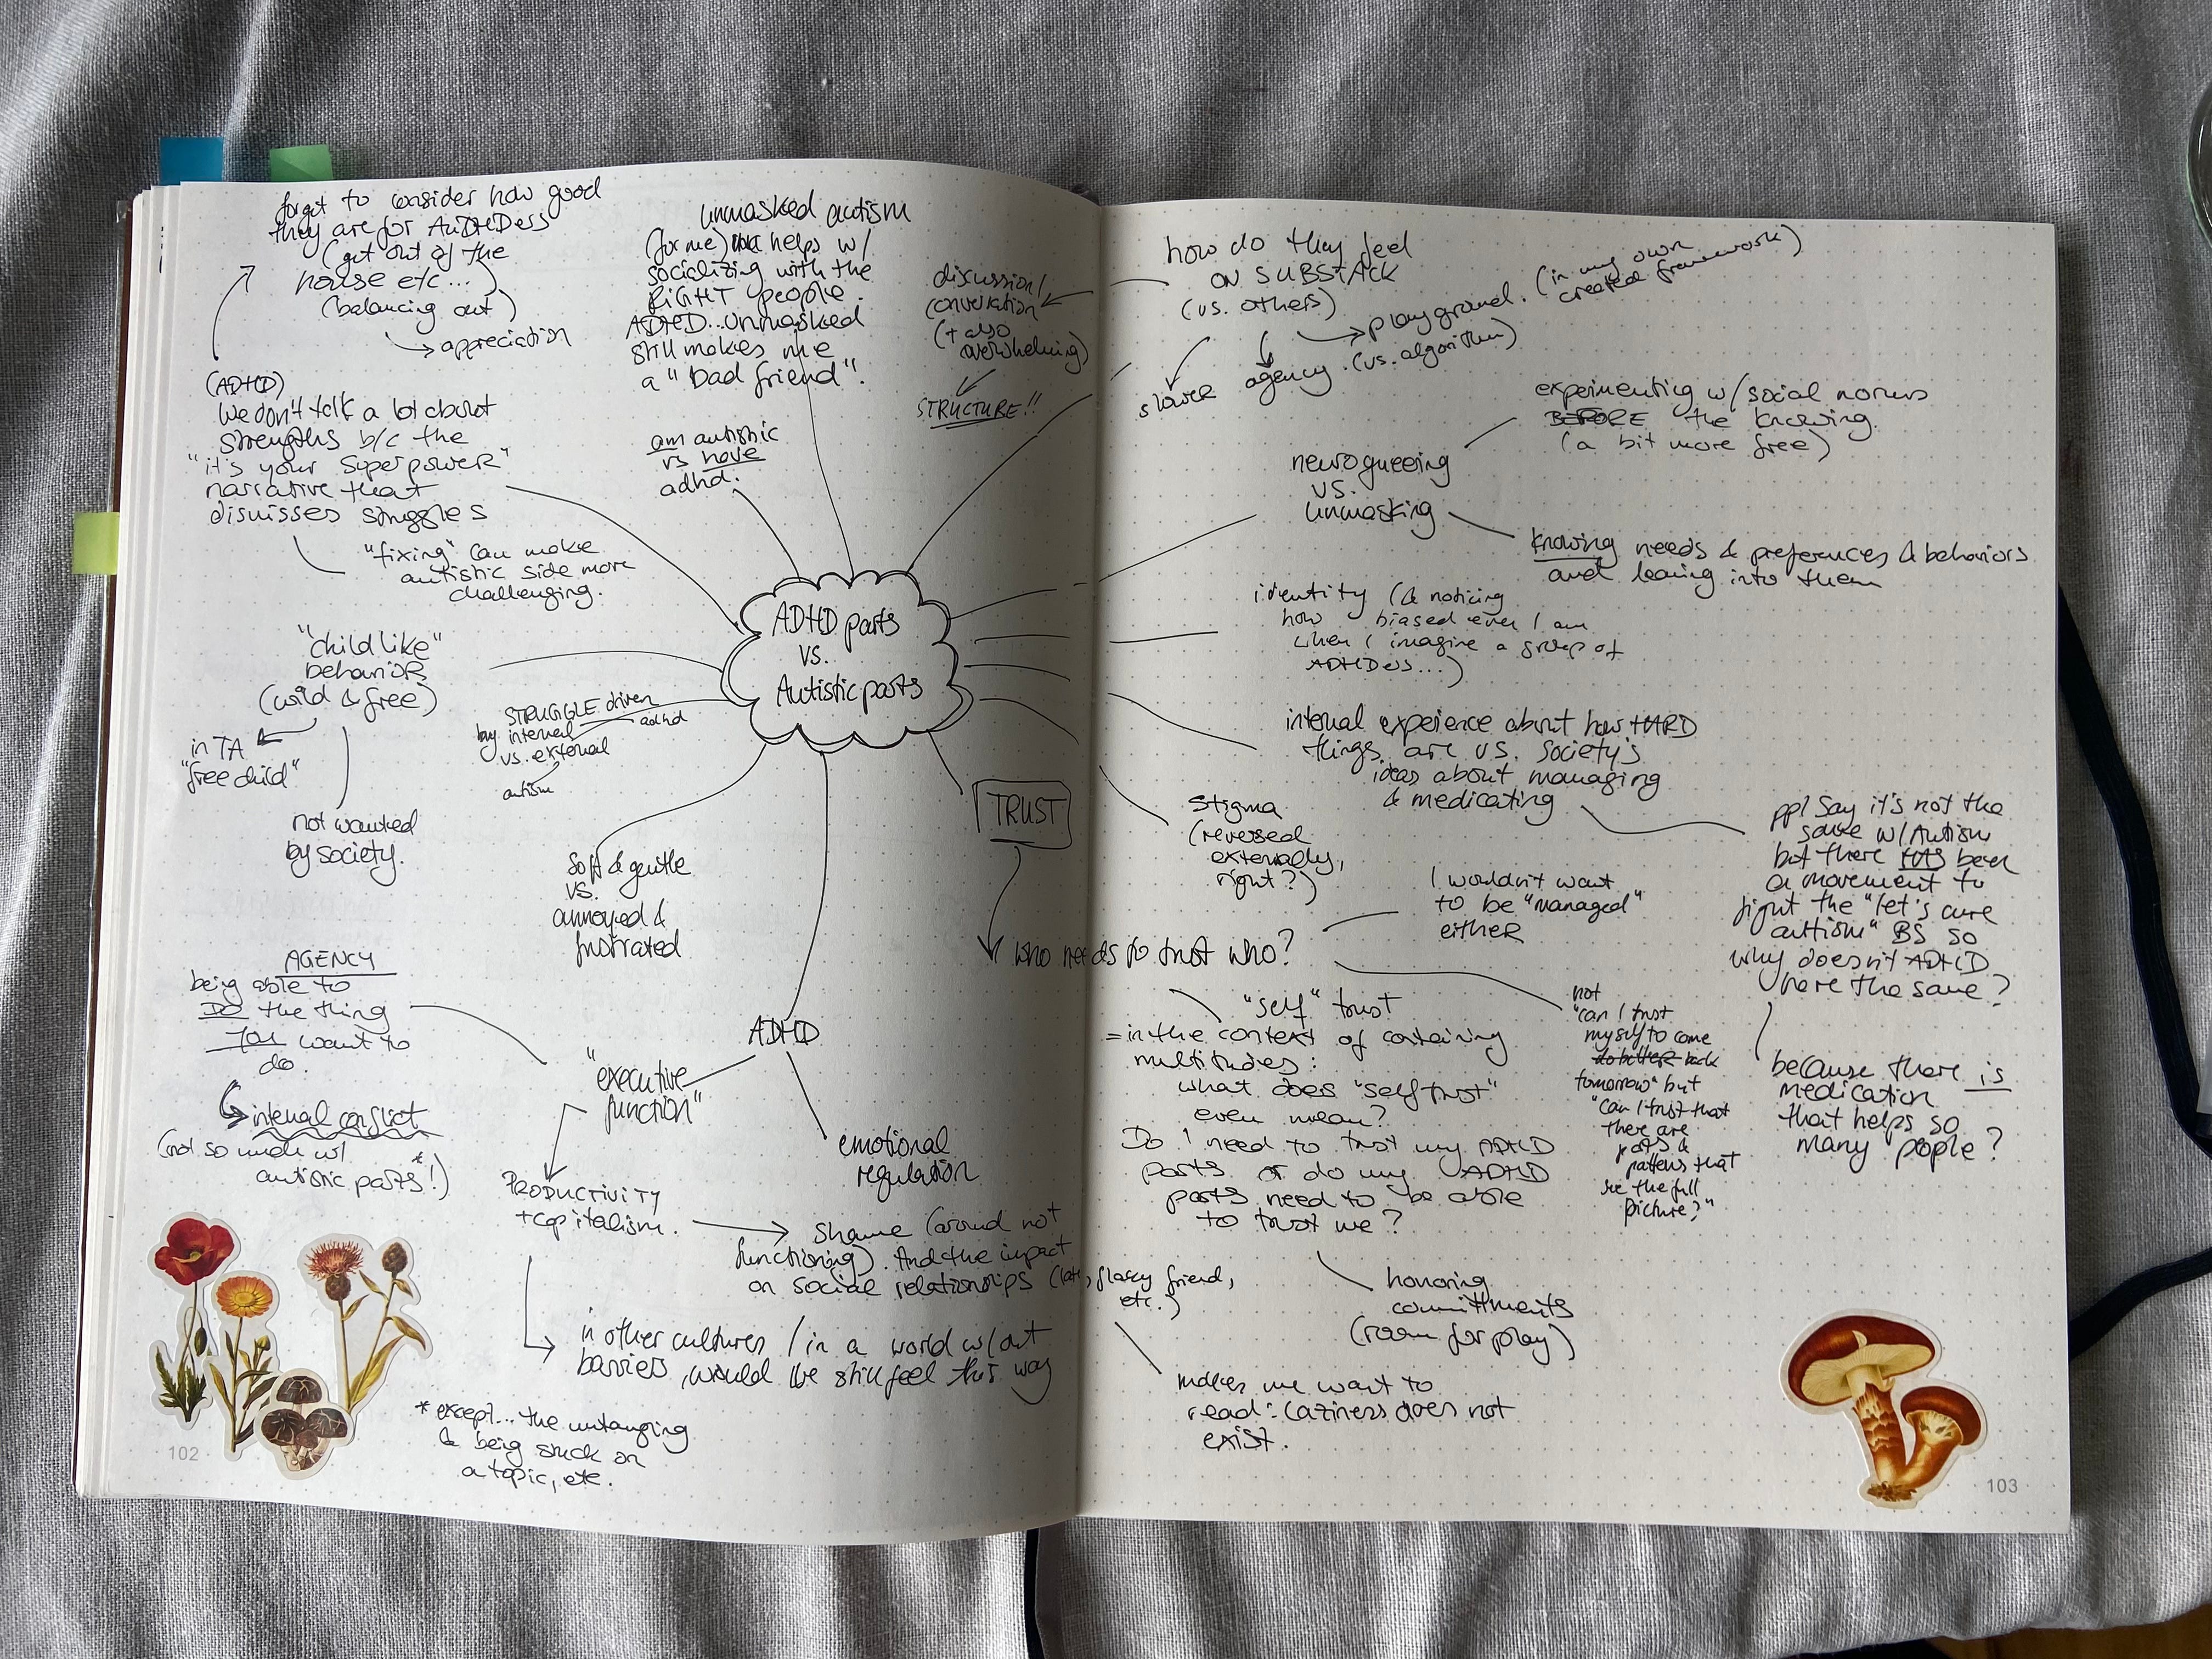 forget to consider how good
they are for AuDHDers
(get out of the
house etc...)
(balancing out)
appreciation
(ADHD)
We don't talk a lot about
strengths b/c the
"it's your Superpower"
narrative that
dismisses struggles
"fixing" can make
autistic side more
challenging.
unmasked autism
(for me) helps w/
socializing with the
RIGHT people.
ADHD... unmasked
still makes me
a "bad friend".
am autistic
vs have
adhd.
discussion/
conversation
(+ also
overwhelming)
STRUCTURE!!
ADHD parts
VS.
Autistic parts
"child like"
behavior
(wild & free)
in TA
"free child"
not wanted
by society.
STRUGGLE driven
by internal
adhd
vs. external
autism
soft & gentle
VS.
annoyed &
frustrated
TRUST
AGENCY
being able to
DO the thing
YOU want to
do.
internal conflict
(not so much w/
autistic parts*!)
ADHD
"executive
function"
emotional
regulation
PRODUCTIVITY
+ capitalism.
Shame (around not
functioning). And the impact
on social relationships (late, flaky friend,
etc.)
in other cultures / in a world w/out
barriers, would we still feel this way
* except... the untangling
& being stuck on
a topic, etc.
102
how do they feel
ON SUBSTACK
(vs. others)
slower
agency. (vs. algorithm)
playground. (in my own
created framework)
neuroqueering
VS.
unmasking
experimenting w/ social norms
BEFORE the knowing.
(a bit more free)
knowing needs & preferences & behaviors
and leaning into them
identity (& noticing
how biased even I am
when I imagine a group of
ADHDers...)
internal experience about how HARD
things are vs. society's
ideas about managing
& medicating
stigma
(reversed
externally,
right?)
ppl say it's not the
same w/ Autism
but there HAS been
a movement to
fight the "let's cure
autism" BS so
why doesn't ADHD
have the same?
because there is
medication
that helps so
many people?
who needs to trust who?
I wouldn't want
to be "managed"
either
"self" trust
= in the context of containing
multitudes:
what does "self trust"
even mean?
Do I need to trust my ADHD
parts or do my ADHD
parts need to be able
to trust me?
not
"can I trust
myself to come
do better back
tomorrow" but
"can I trust that
there are
parts &
patterns that
see the full
picture?"
honoring
committments
(room for play)
makes me want to
read: Laziness does not
exist.
103